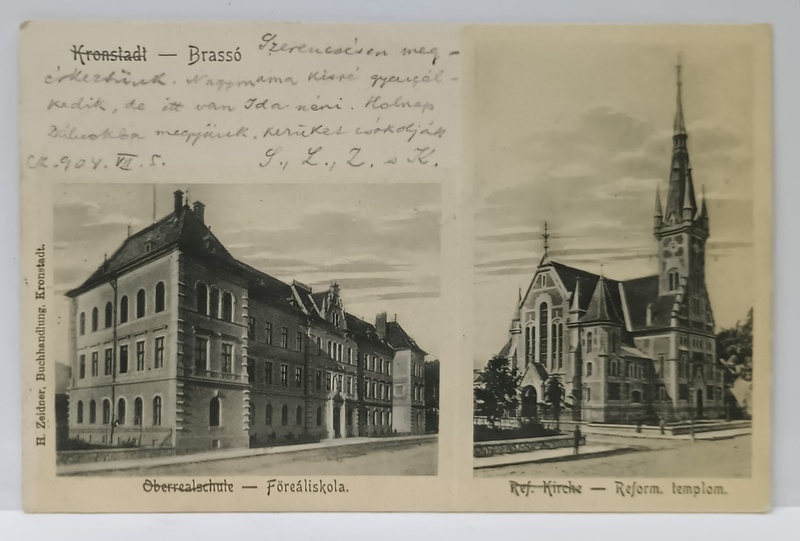 Kronstadt — Brassó
Szerencsésen meg-
érkeztünk. Nagymama kissé gyengél-
kedik, de itt van Ida néni. Holnap
megyünk. csókolják
904. VII. 5. S., L., Z. s K.
H. Zeidner, Buchhandlung, Kronstadt.
Oberrealschule — Főreáliskola.
Ref. Kirche — Reform. templom.